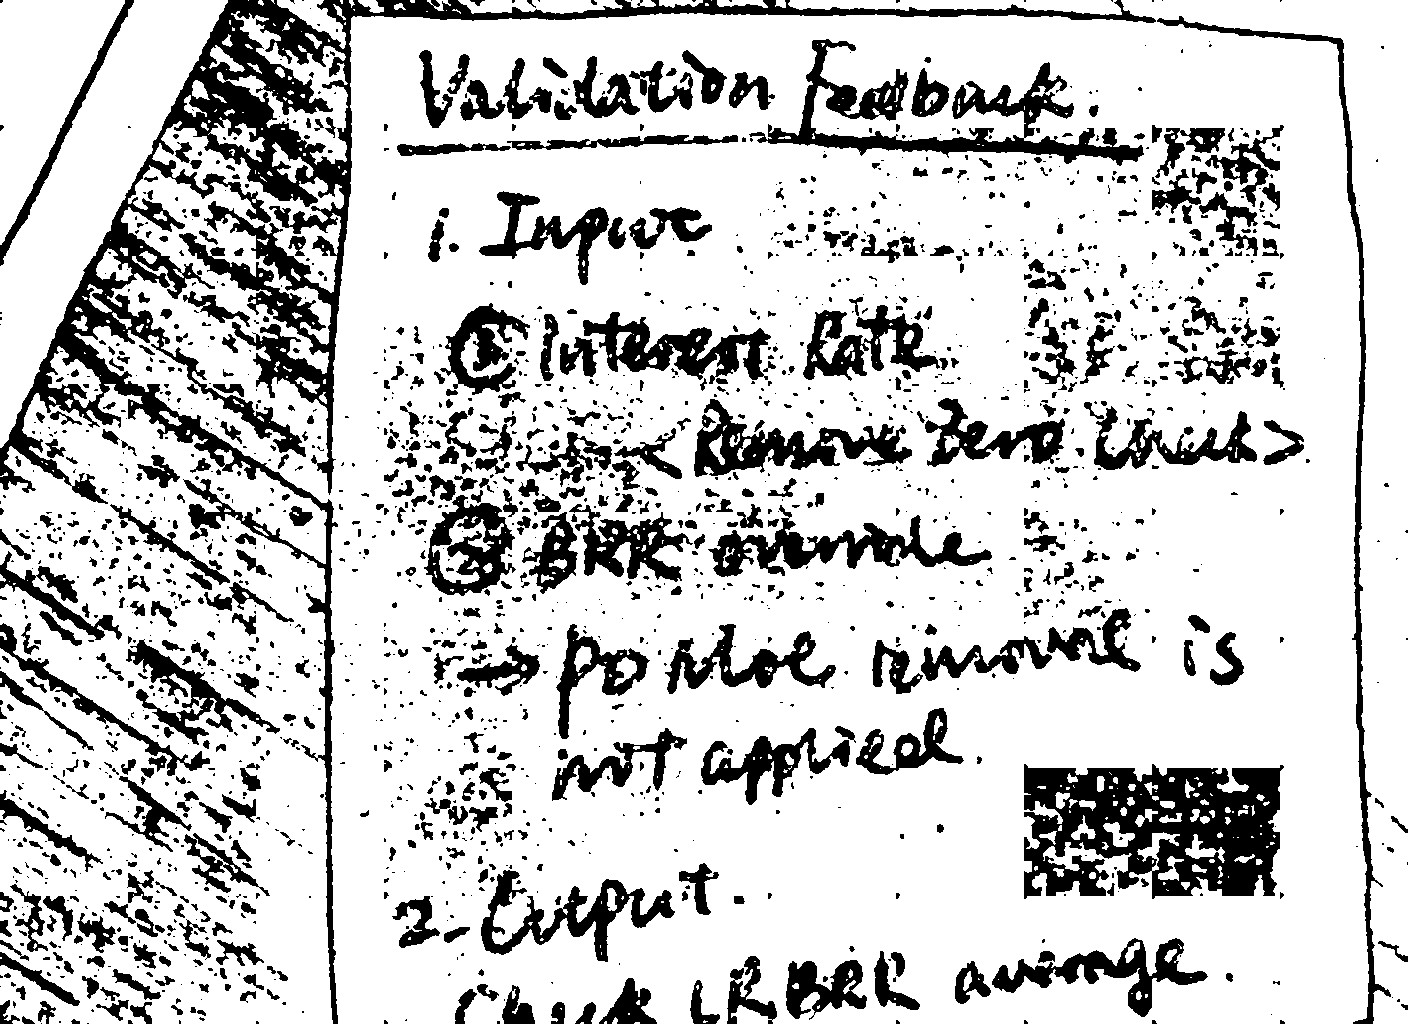 Validation Feedback.
1. Input
① Interest Rate
<Remove Zero Check>
② BRR override
→ removal is
not applied.
2. Output.
Check BRR average.